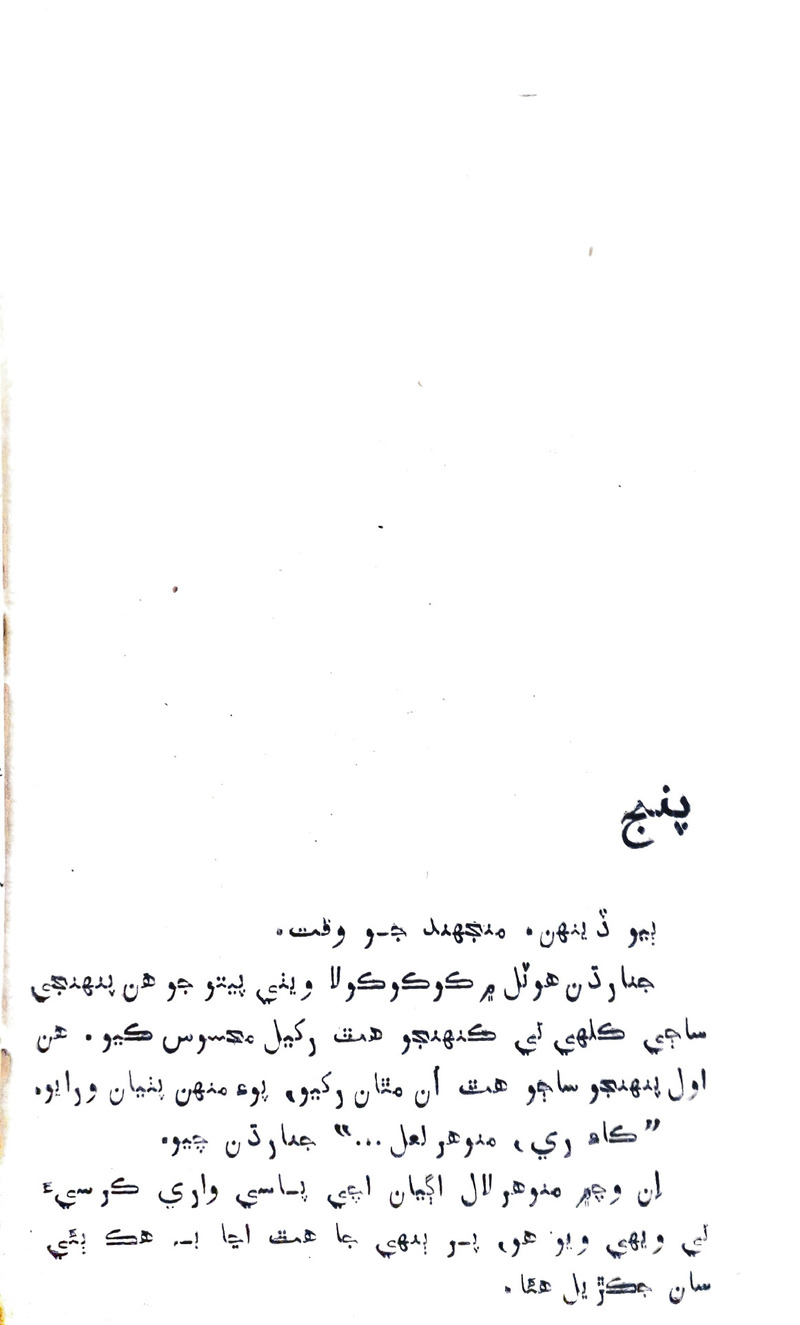 پنج
ٻيو ڏينهن. منجهند جو وقت.
جنارڌن هوٽل ۾ ڪوڪوڪولا ويٺي پيتو جو هن پنهنجي
ساڄي ڪلهي تي ڪنهنجو هٿ رکيل محسوس ڪيو. هن
اول پنهنجو ساڄو هٿ اُن مٿان رکيو، پوءِ منهن پٺيان ورايو.
”ڪاه ري، منوهر لعل...“ جنارڌن چيو.
اِن وچ۾ منوهر لال اڳيان اچي پاسي واري ڪرسيءَ
تي ويهي ويو هو، پر ٻنهي جا هٿ اڃا بہ هڪ ٻئي
سان جڪڙيل هئا.